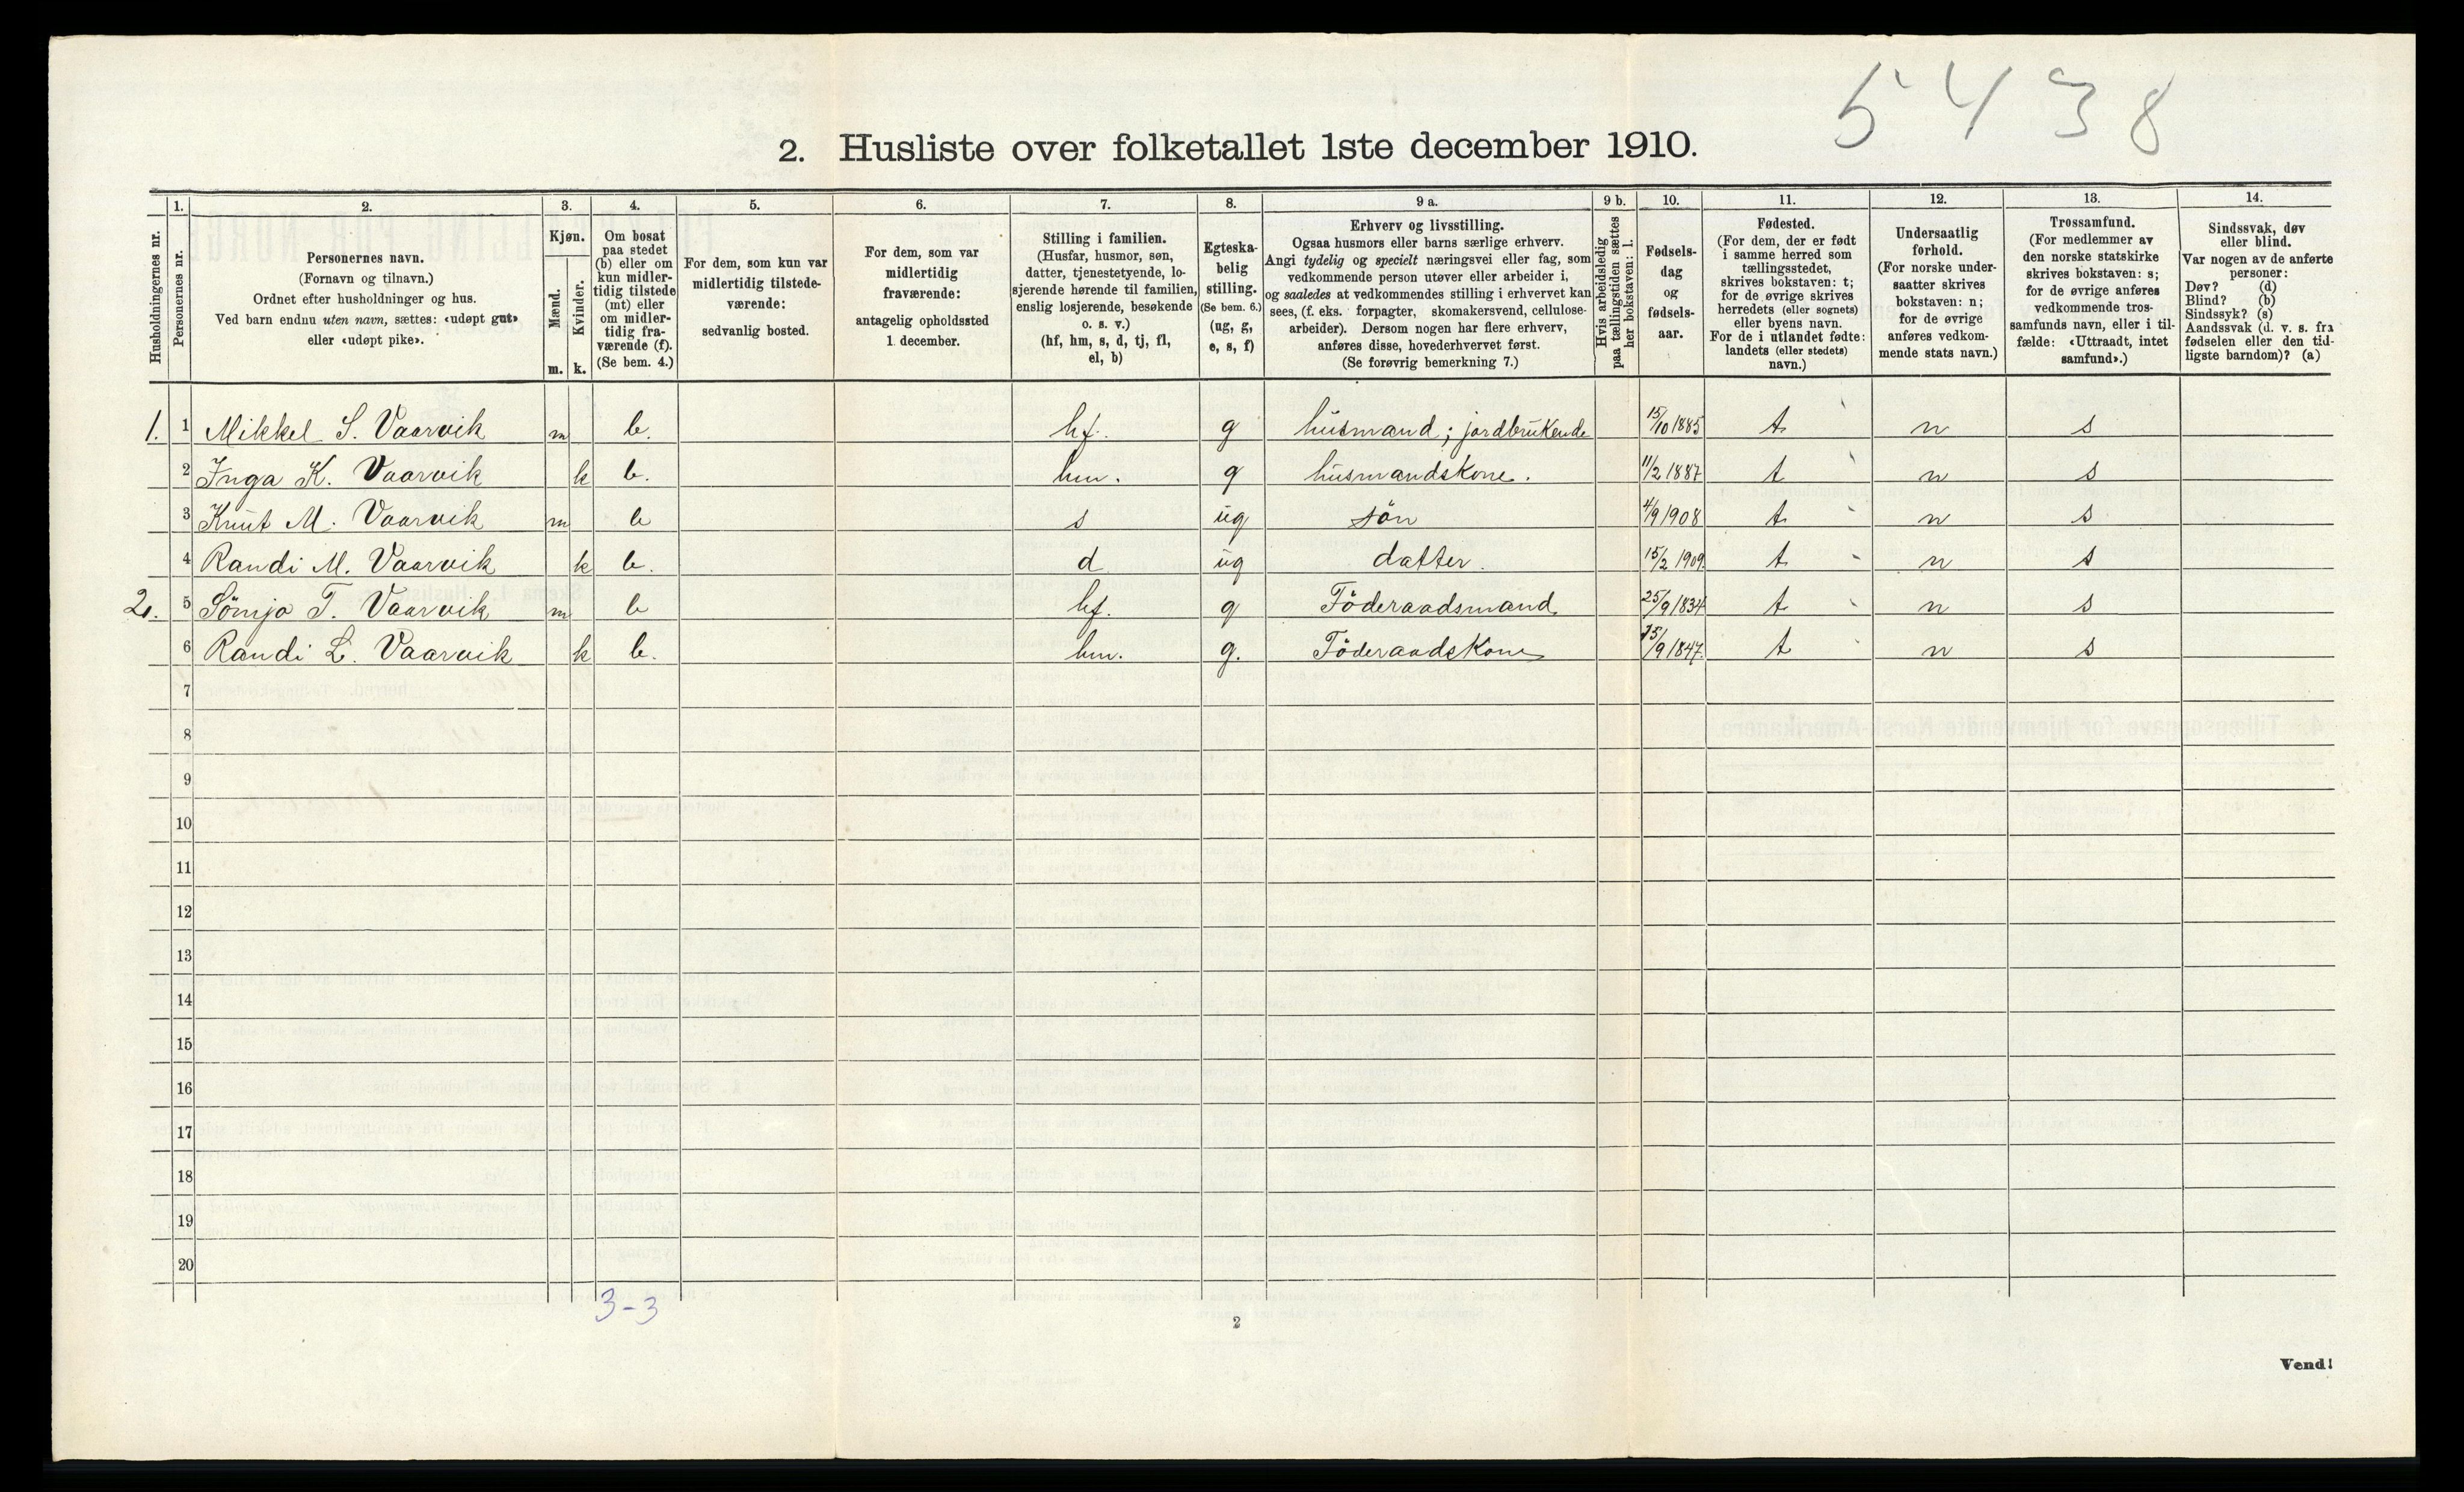 5438
2. Husliste over folketallet 1ste december 1910.
Husholdningernes nr.
1. Personernes nr.
2. Personernes navn.
(Fornavn og tilnavn.)
Ordnet efter husholdninger og hus.
Ved barn endnu uten navn, sættes: «udøpt gut»
eller «udøpt pike».
3. Kjøn.
Mænd. m.
Kvinder. k.
4. Om bosat
paa stedet
(b) eller om
kun midler-
tidig tilstede
(mt) eller
om midler-
tidig fra-
værende (f).
(Se bem. 4.)
5. For dem, som kun var
midlertidig tilstede-
værende:
sedvanlig bosted.
6. For dem, som var
midlertidig
fraværende:
antagelig opholdssted
1. december.
7. Stilling i familien.
(Husfar, husmor, søn,
datter, tjenestetyende, lo-
sjerende hørende til familien,
enslig losjerende, besøkende
o. s. v.)
(hf, hm, s, d, tj, fl,
el, b)
8. Egteska-
belig
stilling.
(Se bem. 6.)
(ug, g,
e, s, f)
9 a. Erhverv og livsstilling.
Ogsaa husmors eller barns særlige erhverv.
Angi tydelig og specielt næringsvei eller fag, som
vedkommende person utøver eller arbeider i,
og saaledes at vedkommendes stilling i erhvervet kan
sees, (f. eks. forpagter, skomakersvend, cellulose-
arbeider). Dersom nogen har flere erhverv,
anføres disse, hovederhvervet først.
(Se forøvrig bemerkning 7.)
9 b. Hvis arbeidsledig
paa tællingstiden sættes
her bokstaven: l.
10. Fødsels-
dag
og
fødsels-
aar.
11. Fødested.
(For dem, der er født
i samme herred som
tællingsstedet,
skrives bokstaven: t;
for de øvrige skrives
herredets (eller sognets)
eller byens navn.
For de i utlandet fødte:
landets (eller stedets)
navn.)
12. Undersaatlig
forhold.
(For norske under-
saatter skrives
bokstaven: n;
for de øvrige
anføres vedkom-
mende stats navn.)
13. Trossamfund.
(For medlemmer av
den norske statskirke
skrives bokstaven: s;
for de øvrige anføres
vedkommende tros-
samfunds navn, eller i til-
fælde: «Uttraadt, intet
samfund».)
14. Sindssvak, døv
eller blind.
Var nogen av de anførte
personer:
Døv? (d)
Blind? (b)
Sindssyk? (s)
Aandssvak (d. v. s. fra
fødselen eller den tid-
ligste barndom)? (a)
1. 1 Mikkel S. Vaarvik m b. hf. g husmand; jordbrukende 15/10 1885 t n s
2 Inga K. Vaarvik k b. hm. g husmandskone. 11/2 1887 t n s
3 Knut M. Vaarvik m b s ug sön 4/9 1908 t n s
4 Randi M. Vaarvik k b. d ug datter. 15/2 1909. t n s
2. 5 Sömjo T. Vaarvik m b hf. g Föderaadsmand 25/9 1834 t n s
6 Randi L. Vaarvik k b. hm. g. Föderaadskone 15/9 1847. t n s
7
8
9
10
11
12
13
14
15
16
17
18
19
20
3-3
2
Vend!